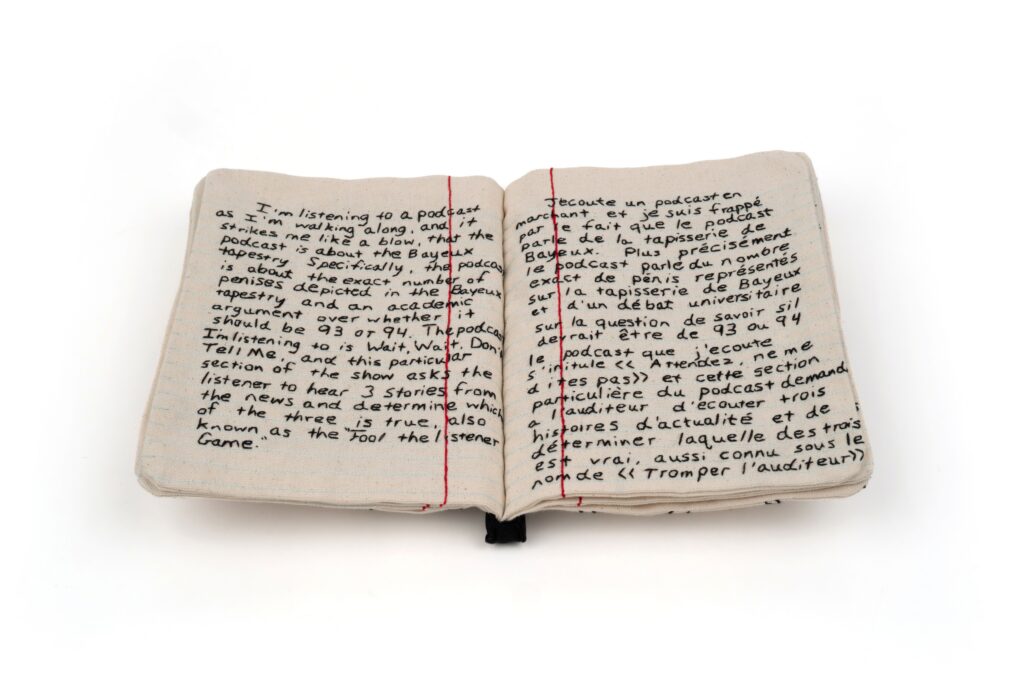 I'm listening to a podcast
as I'm walking along, and it
strikes me like a blow, that the
podcast is about the Bayeux
tapestry Specifically, the podcas
is about the exact number of
penises depicted in the Bayeux
tapestry and an academic
argument over whether it
should be 93 or 94. The podcas
I'm listening to is Wait, Wait, Don'
Tell Me, and this particular
section of the show asks the
listener to hear 3 stories from
the news and determine which
of the three is true, also
known as the "Fool the listener
Game."
J'ecoute un podcast en
marchant et je suis frappé
par le fait que le podcast
parle de la tapisserie de
Bayeux. Plus précisément
le podcast parle du nombre
exact de pénis représentés
sur la tapisserie de Bayeux
et d'un débat universitaire
sur la question de savoir sil
devrait être de 93 ou 94
le podcast que j'ecoute
s'initule << Attendez, ne me
dites pas>> et cette section
particulière du podcast demand
a l'auditeur d'ecouter trois
histoires d'actualité et de
déterminer laquelle des trois
est vrai, aussi connu sous le
nom de << Tromper l'auditeur>>